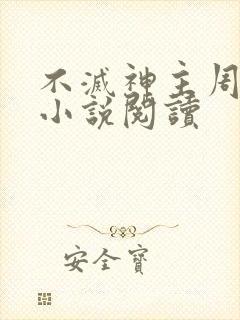 不滅神主周
小說閱讀
安全寶